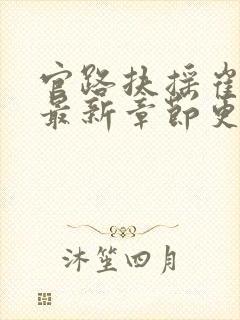 官路扶摇崔
最新章节更
沐笙四月